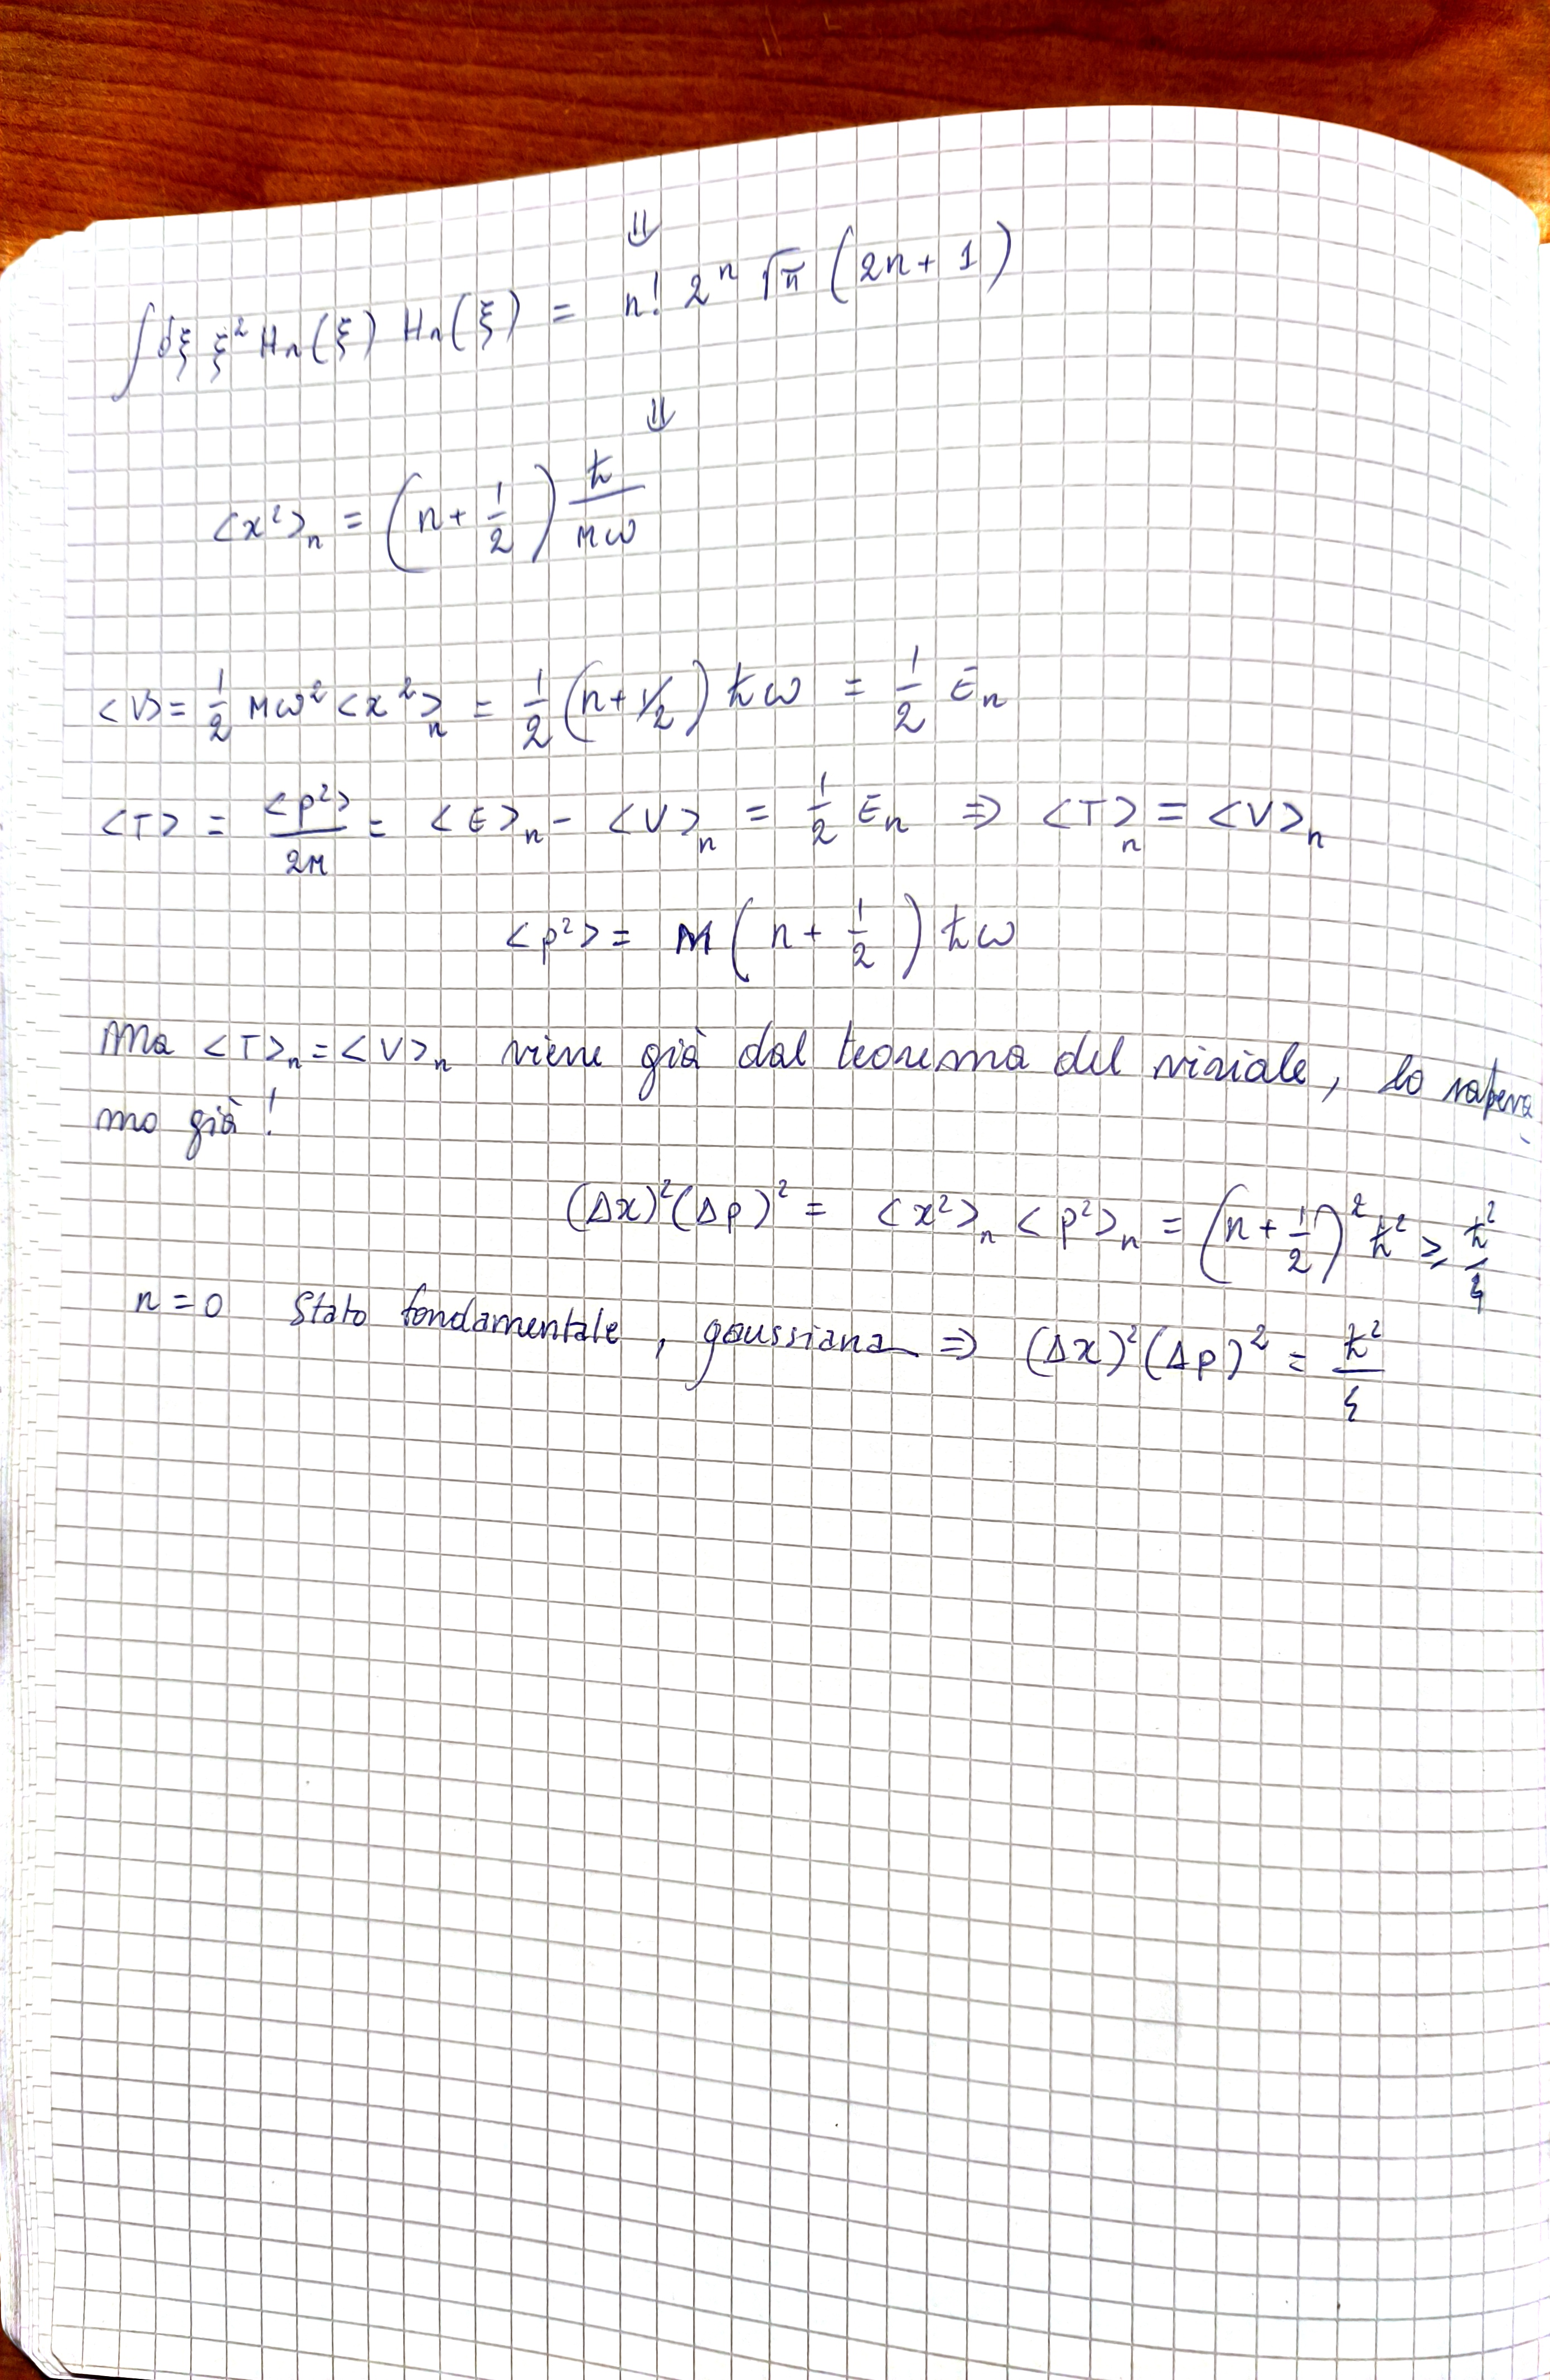 ⇓
∫dξ ξ² Hn(ξ) Hn(ξ) = n! 2ⁿ √π (2n+1)
⇓
<x²>n = (n + 1/2) ħ/Mω
<V> = 1/2 Mω² <x²>n = 1/2 (n+1/2) ħω = 1/2 En
<T> = <p²>/2M = <E>n - <V>n = 1/2 En ⇒ <T>n = <V>n
<p²> = M (n + 1/2) ħω
Ma <T>n = <V>n viene già dal teorema del viriale, lo sapeva
mo già!
(Δx)²(Δp)² = <x²>n <p²>n = (n + 1/2)² ħ² ≥ ħ²/4
n=0 Stato fondamentale, gaussiana ⇒ (Δx)²(Δp)² = ħ²/4